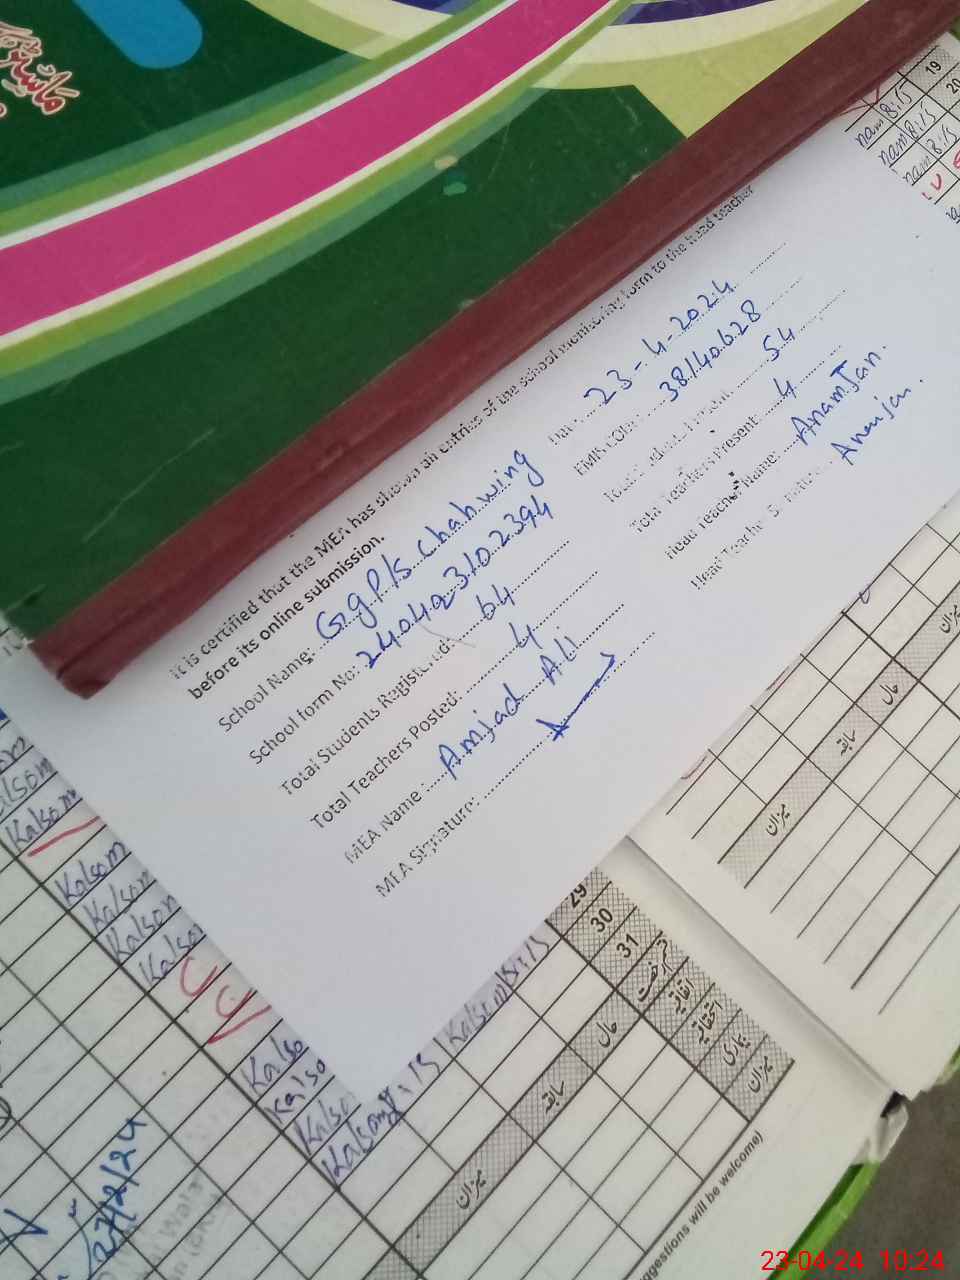 It is certified that the MEA has shown all entries of the school monitoring form to the head teacher
before its online submission.
School Name: GgP/s Chahwing
Date: 23-4-2024
School form No: 240423102394
EMIS Code: 38140628
Total Students Registered: 64
Total Students Present: 54
Total Teachers Posted: 4
Total Teachers Present: 4
MEA Name: Amjad Ali
Head Teacher Name: Anam Jan
MEA Signature:
Head Teacher Signature: Anamjan
19
20
nam 8:15
nam 8:15
nam 8:15
Kalsom
Kalsom
Kalsom
Kalsom
Kalsom
Kalso
Kalso
Kalso
Kalsom 8:15
Kalsom 8:15
29
30
31
اتفاقیہ
استحقاقیہ
بیماری
میزان
حال
سابقہ
میزان
حال
سابقہ
میزان
میزان
27/2/24
ggestions will be welcome)
23-04-24 10:24